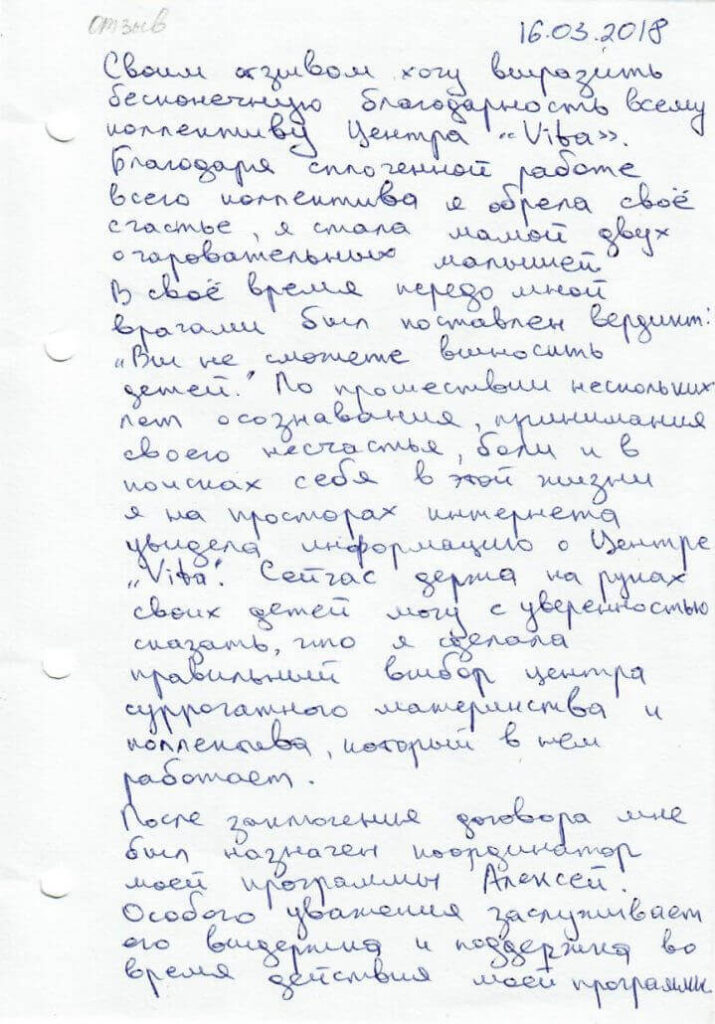 отзыв
16.03.2018
Своим отзывом хочу выразить
бесконечную благодарность всему
коллективу Центра «Vita».
Благодаря сплоченной работе
всего коллектива я обрела своё
счастье, я стала мамой двух
очаровательных малышей.
В своё время передо мной
врачами был поставлен вердикт:
„Вы не сможете выносить
детей." По прошествии нескольких
лет осознавания, принимания
своего несчастья, боли и в
поисках себя в этой жизни
я на просторах интернета
увидела информацию о Центре
„Vita". Сейчас держа на руках
своих детей могу с уверенностью
сказать, что я сделала
правильный выбор центра
суррогатного материнства и
коллектива, который в нем
работает.
После заключения договора мне
был назначен координатор
моей программы Алексей.
Особого уважения заслуживает
его выдержка и поддержка во
время действия моей программы.